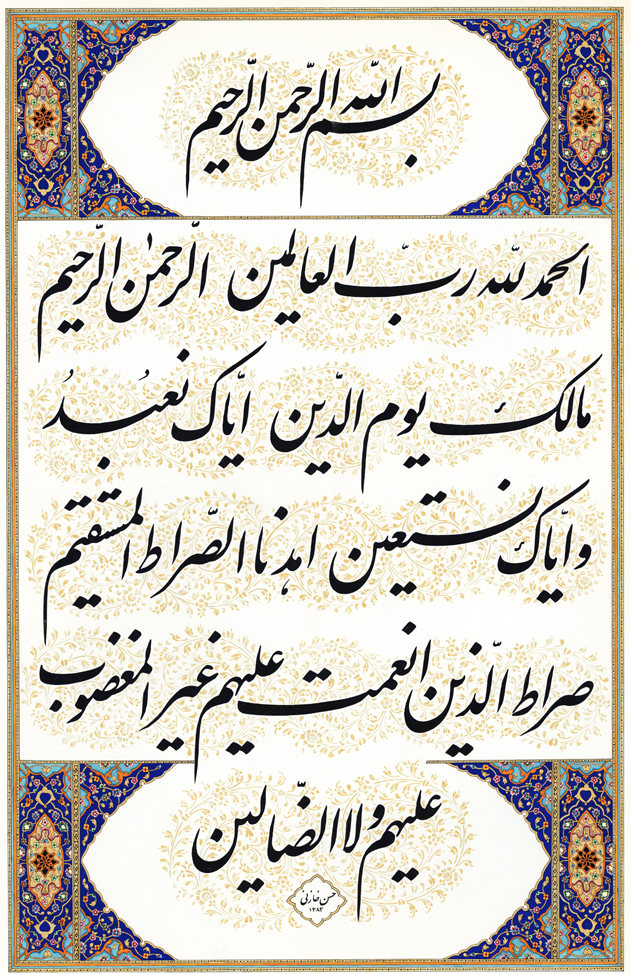 بسم الله الرّحمن الرّحیم
الحمد لله ربّ العالمین الرّحمٰن الرّحیم
مالک یوم الدّین ایّاک نعبُدُ
و ایّاک نستعین اهدنا الصّراط المستقیم
صراط الّذین انعمت علیهم غیر المغضوب
علیهم ولا الضّالین
حسن خازنی
۱۳۸۳